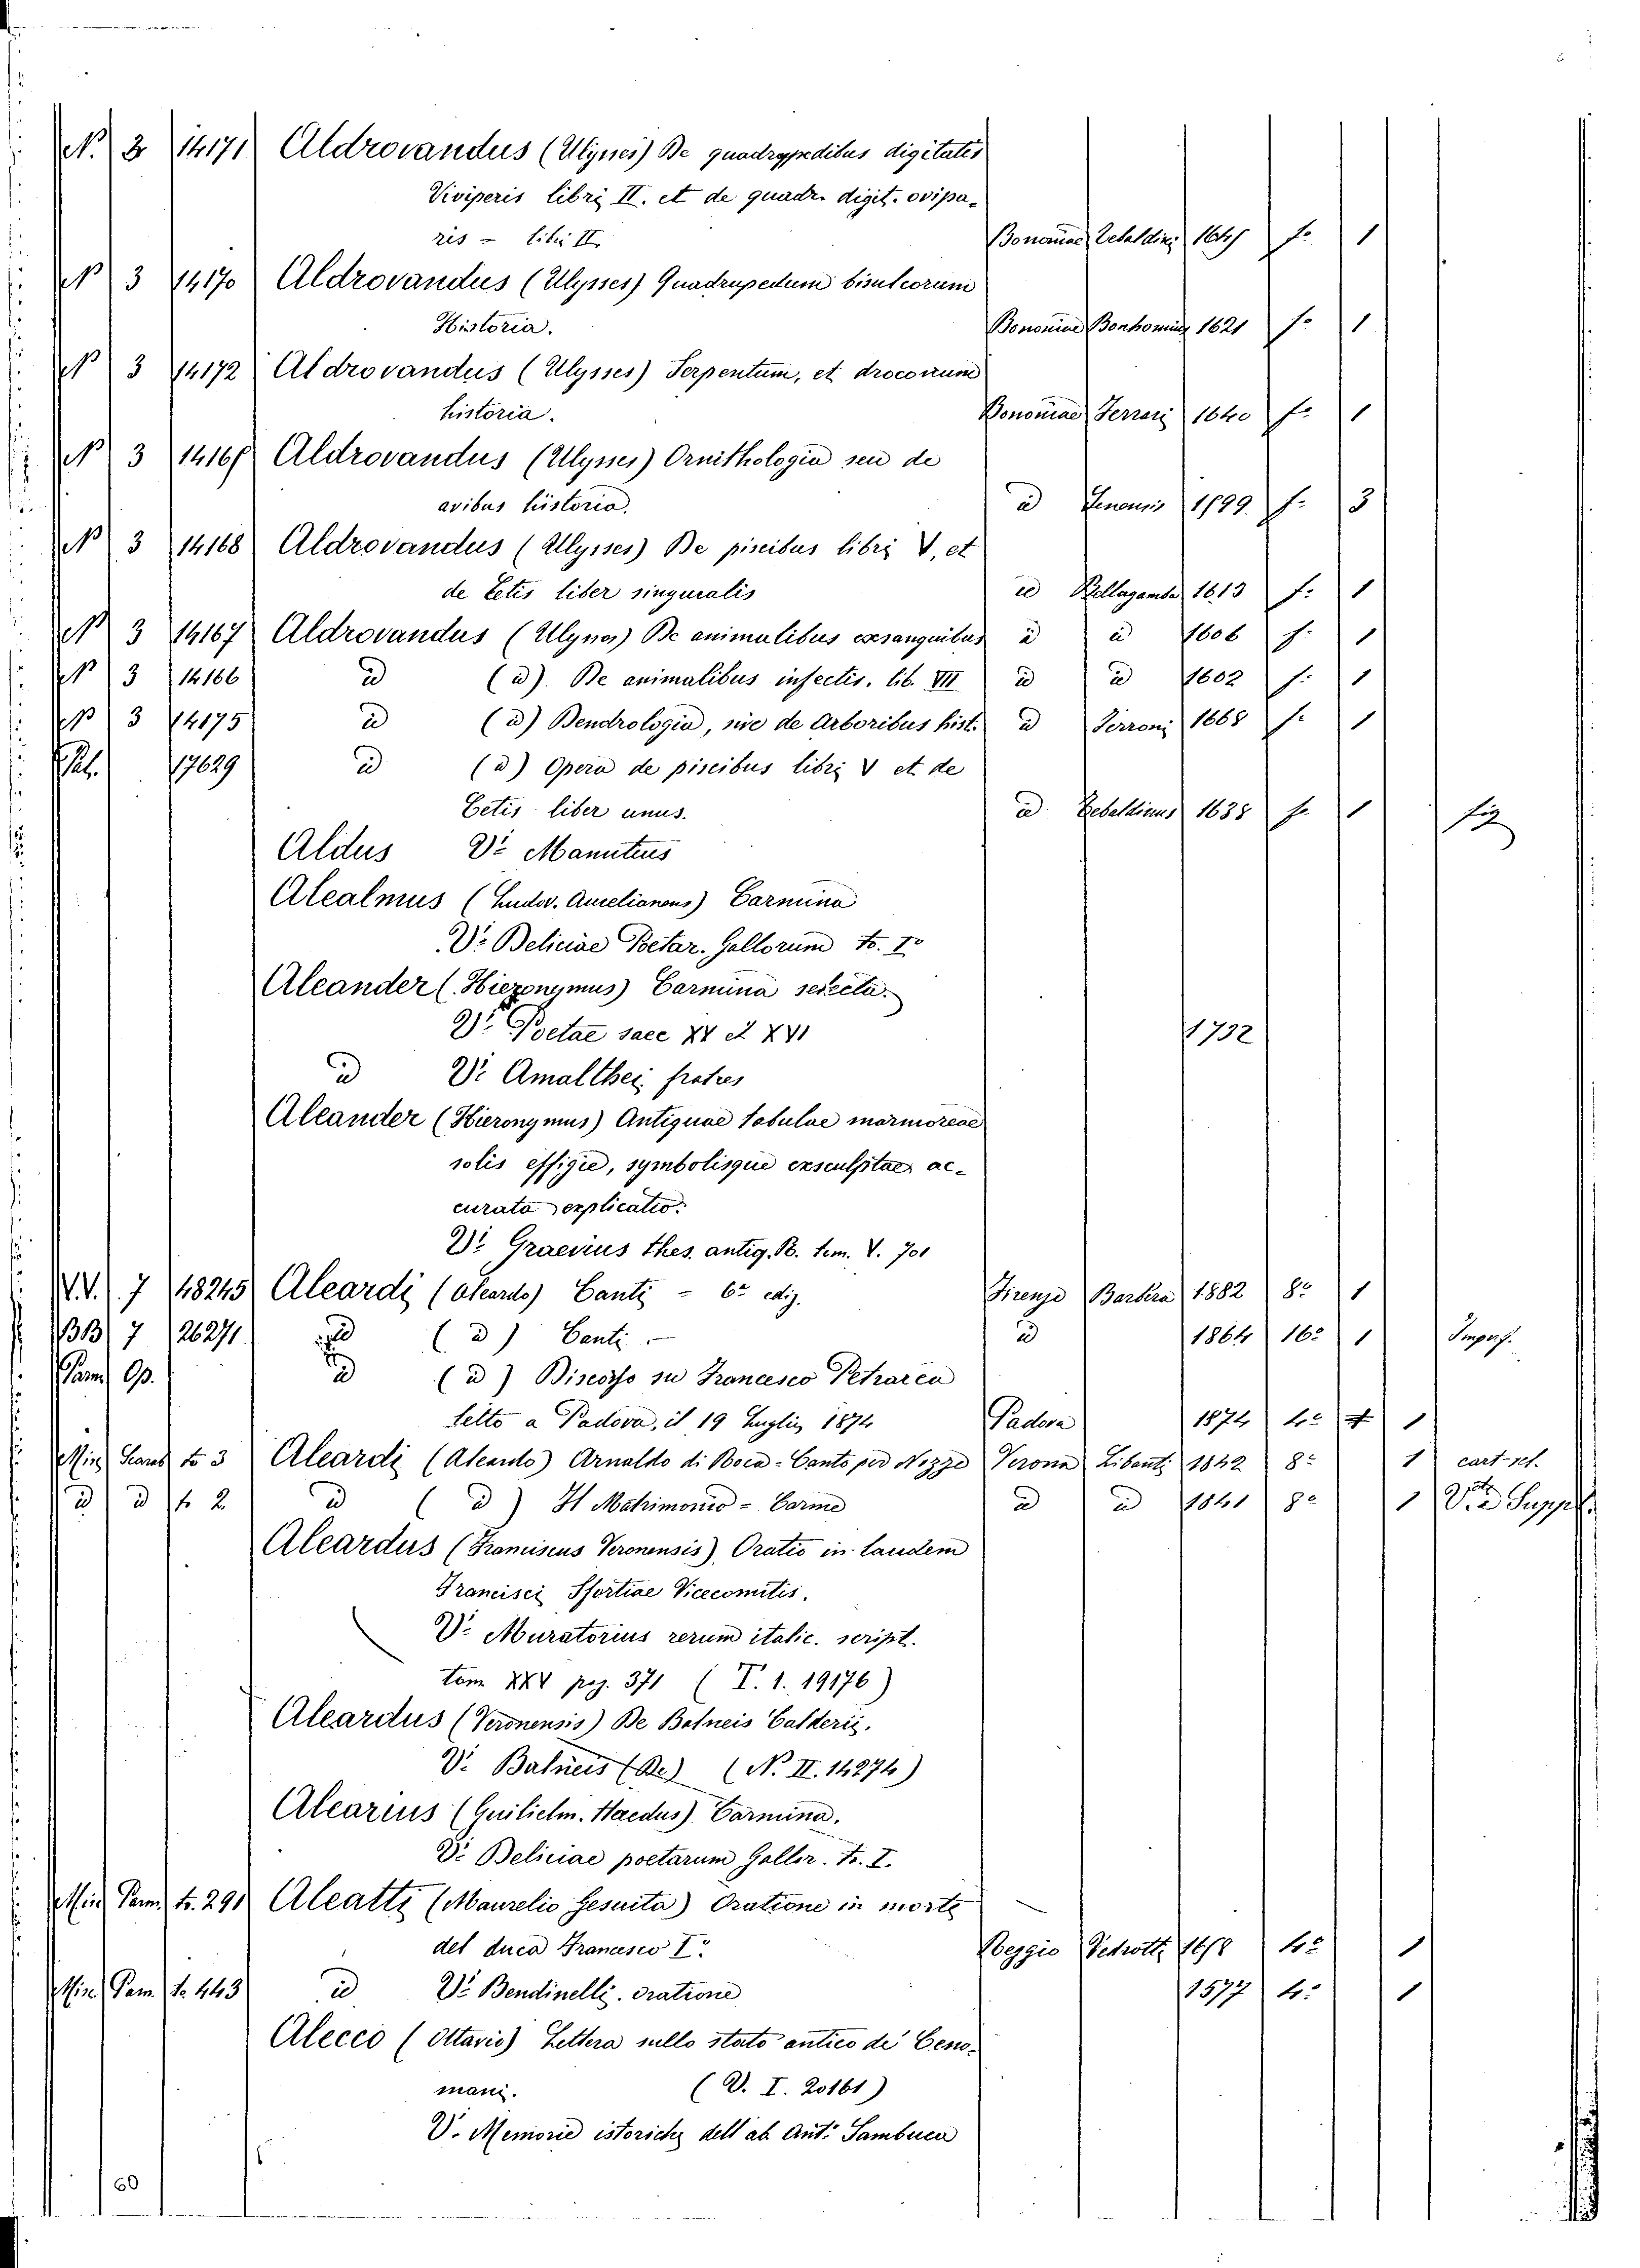 N. 3 14171 Aldrovandus (Ulysses) De quadrupedibus digitatis
Viviperis libri II. et de quadr. digit. ovipa-
ris - libri II Bononiae Tebaldini f.o 1
N 3 14170 Aldrovandus (Ulysses) Quadrupedum bisulcorum
Historia. Bononiae Bonhomii 1621 f.o 1
N 3 14172 Aldrovandus (Ulysses) Serpentum, et draconum
historia. Bononiae Ferrari 1640 f.o 1
N 3 Aldrovandus (Ulysses) Ornithologia seu de
avibus historia. id f. 3
N 3 14168 Aldrovandus (Ulysses) De piscibus libri V, et
de Cetis liber singuralis id Bellagamba 1613 f. 1
N 3 14167 Aldrovandus (Ulysses) De animalibus exsanguibus id id 1606 f. 1
N 3 14166 id (id). De animalibus insectis. lib. VII id id 1602 f. 1
N 3 14175 id (id) Dendrologia, sive de Arboribus hist. id Ferroni 1668 f. 1
Pal. 17629 id (id) Opera de piscibus libri V et de
Cetis liber unus. id Tebaldinus 1638 f. 1 fig
Aldus V. Manutius
Alealmus (Ludov. Aurelianens) Carmina
V. Deliciae Poetar. Gallorum to. I.o
Aleander (Hieronymus) Carmina selecta.
V. Poetae saec XV et XVI 1732
id V. Amalthei fratres
Aleander (Hieronymus) Antiquae tabulae marmoreae
solis effigie, symbolisque exsculptae ac-
curata explicatio.
V. Graevius thes. antiq. R. tom. V. 701
VV. 7 48245 Aleardi (Aleardo) Canti - 6.a ediz. Firenze Barbera 1882 8.o 1
BB 7 26271 id (id) Canti. - id 1864 16.o 1 Imperf.
Parm Op. id (id) Discorso su Francesco Petrarca
letto a Padova, il 19 Luglio 1874 Padova 1874 4.o 1
Misc Scarab to 3 Aleardi (Aleardo) Arnaldo di Roca - Canto per Nozze Verona Libanti 1842 8.o 1 cart-rel.
id id to 2 id (id) Il Matrimonio - Carme id id 1841 8.o 1 V.te Suppl.
Aleardus (Franciscus Veronensis) Oratio in laudem
Francisci Sfortiae Vicecomitis.
V. Muratorius rerum italic. script.
tom XXV pag. 371 (T. 1. 19176)
Aleardus (Veronensis) De Balneis Calderii.
V. Balneis (De) (N. II. 14274)
Alearius (Guilielm. Haedus) Carmina.
V. Deliciae poetarum Gallor. to. I.
Misc Parm to. 291 Aleatti (Maurelio Gesuita) Oratione in morte
del duca Francesco I.o Reggio 4.o 1
Misc. Parm to 443 id V. Bendinelli. oratione 1577 4.o 1
Alecco (Ottavio) Lettera sullo stato antico de' Ceno-
mani. (V. I. 20161)
V. Memorie istoriche dell ab. Ant. Sambuca
60